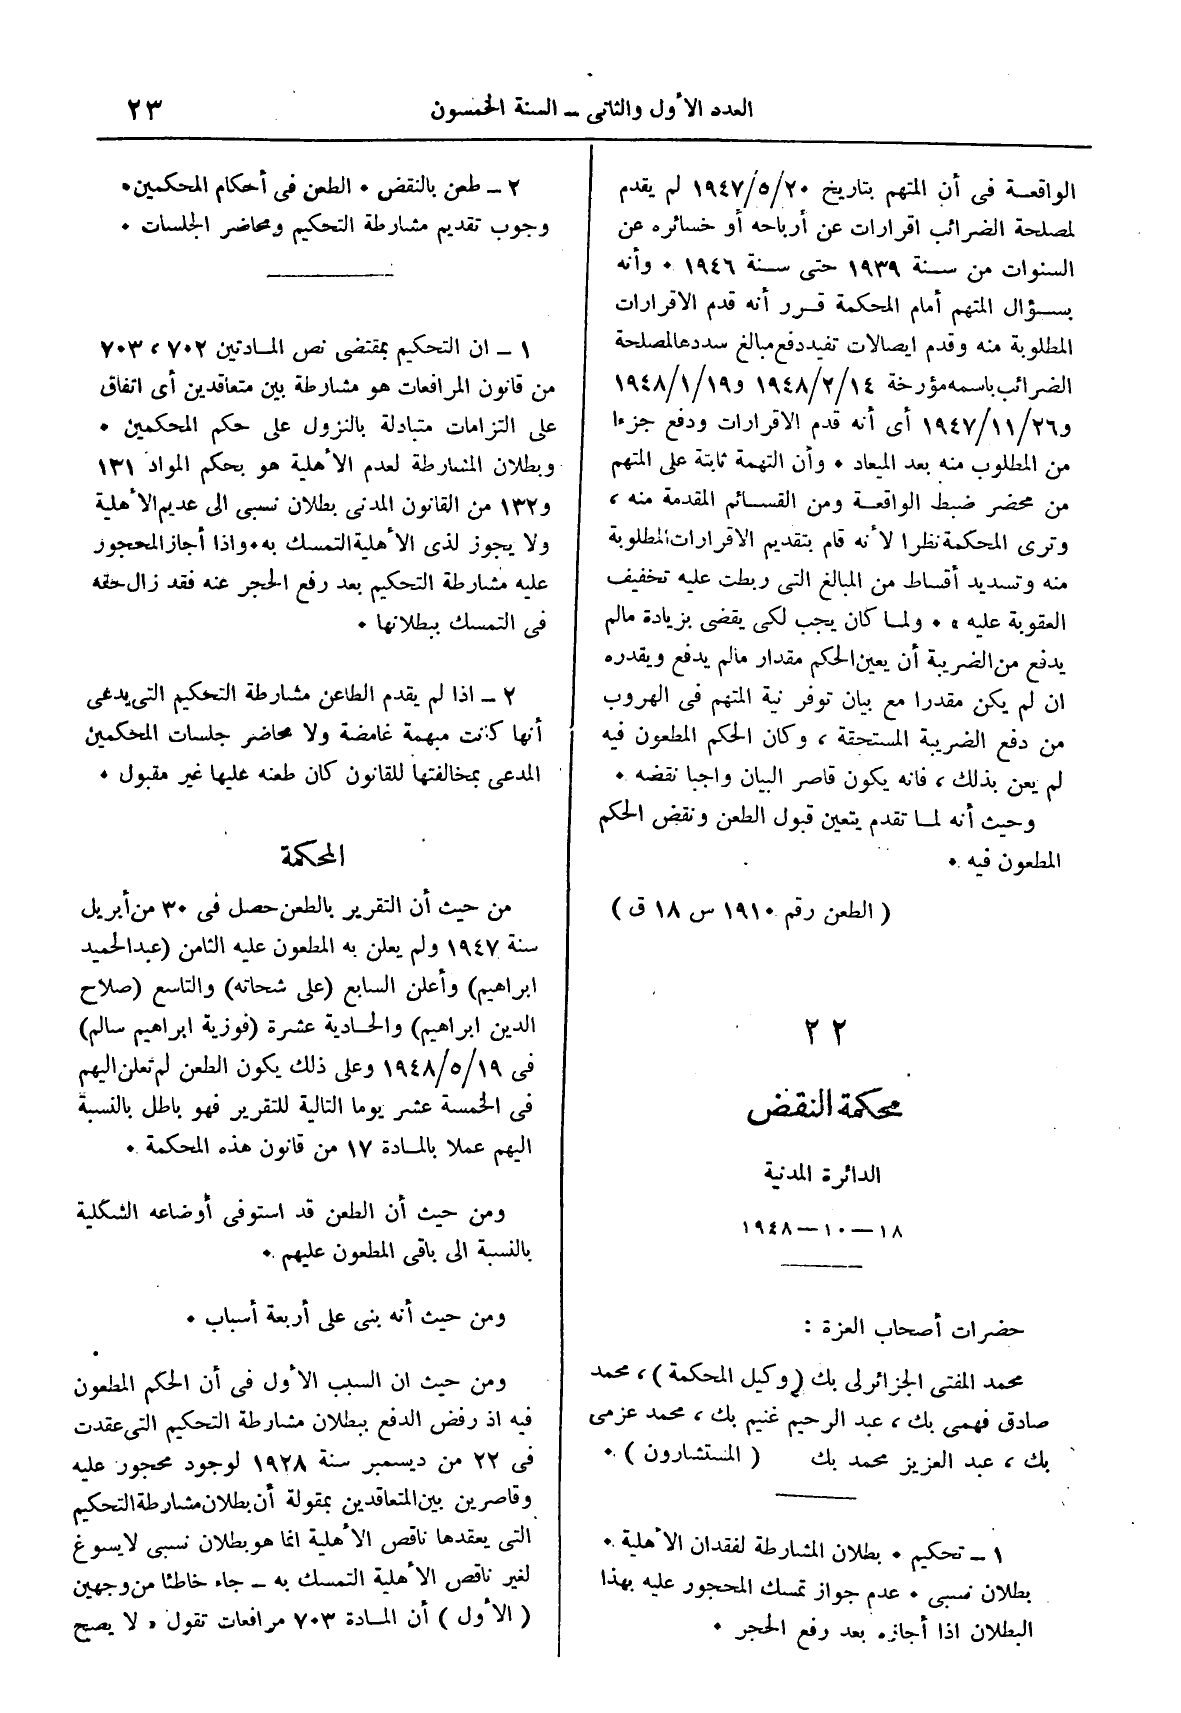 العدد الأول والثانى – السنة الخمسون
٢٣
الواقعة فى أن المتهم بتاريخ ٢٠/٥/١٩٤٧ لم يقدم
لمصلحة الضرائب اقرارات عن أرباحه أو خسائره عن
السنوات من سنة ١٩٣٩ حتى سنة ١٩٤٦ ٠ وأنه
بسؤال المتهم أمام المحكمة قرر أنه قدم الاقرارات
المطلوبة منه وقدم ايصالات تفيد دفع مبالغ سددها لمصلحة
الضرائب باسمه مؤرخة ١٩٤٨/٢/١٤ و١٩٤٨/١/١٩
و١٩٤٧/١١/٢٦ أى أنه قدم الاقرارات ودفع جزءا
من المطلوب منه بعد الميعاد ٠ وأن التهمة ثابتة على المتهم
من محضر ضبط الواقعة ومن القسائم المقدمة منه ،
وترى المحكمة نظرا لأنه قام بتقديم الاقرارات المطلوبة
منه وتسديد أقساط من المبالغ التى ربطت عليه تخفيف
العقوبة عليه » ٠ ولما كان يجب لكى يقضى بزيادة مالم
يدفع من الضريبة أن يعين الحكم مقدار مالم يدفع ويقدره
ان لم يكن مقدرا مع بيان توفر نية المتهم فى الهروب
من دفع الضريبة المستحقة ، وكان الحكم المطعون فيه
لم يعن بذلك ، فانه يكون قاصر البيان واجبا نقضه ٠
وحيث أنه لما تقدم يتعين قبول الطعن ونقض الحكم
المطعون فيه ٠
( الطعن رقم ١٩١٠ س ١٨ ق )
٢٢
محكمة النقض
الدائرة المدنية
١٨ – ١٠ – ١٩٤٨
حضرات أصحاب العزة :
محمد المفتى الجزائرلى بك (وكيل المحكمة) ، محمد
صادق فهمى بك ، عبد الرحيم غنيم بك ، محمد عزمى
بك ، عبد العزيز محمد بك ( المستشارون ) ٠
١ – تحكيم ٠ بطلان المشارطة لفقدان الأهلية ٠
بطلان نسبى ٠ عدم جواز تمسك المحجور عليه بهذا
البطلان اذا أجازه بعد رفع الحجر ٠
٢ – طعن بالنقض ٠ الطعن فى أحكام المحكمين ٠
وجوب تقديم مشارطة التحكيم ومحاضر الجلسات ٠
١ – ان التحكيم بمقتضى نص المادتين ٧٠٢ ، ٧٠٣
من قانون المرافعات هو مشارطة بين متعاقدين أى اتفاق
على التزامات متبادلة بالنزول على حكم المحكمين ٠
وبطلان المشارطة لعدم الأهلية هو بحكم المواد ١٣١
و١٣٢ من القانون المدنى بطلان نسبى الى عديم الأهلية
ولا يجوز لذى الأهلية التمسك به ٠ واذا أجاز المحجور
عليه مشارطة التحكيم بعد رفع الحجر عنه فقد زال حقه
فى التمسك ببطلانها ٠
٢ – اذا لم يقدم الطاعن مشارطة التحكيم التى يدعى
أنها كانت مبهمة غامضة ولا محاضر جلسات المحكمين
المدعى بمخالفتها للقانون كان طعنه عليها غير مقبول ٠
المحكمة
من حيث أن التقرير بالطعن حصل فى ٣٠ من أبريل
سنة ١٩٤٧ ولم يعلن به المطعون عليه الثامن (عبد الحميد
ابراهيم) وأعلن السابع (على شحاته) والتاسع (صلاح
الدين ابراهيم) والحادية عشرة (فوزية ابراهيم سالم)
فى ١٩/٥/١٩٤٨ وعلى ذلك يكون الطعن لم تعلن اليهم
فى الخمسة عشر يوما التالية للتقرير فهو باطل بالنسبة
اليهم عملا بالمادة ١٧ من قانون هذه المحكمة ٠
ومن حيث أن الطعن قد استوفى أوضاعه الشكلية
بالنسبة الى باقى المطعون عليهم ٠
ومن حيث أنه بنى على أربعة أسباب ٠
ومن حيث ان السبب الأول فى أن الحكم المطعون
فيه اذ رفض الدفع ببطلان مشارطة التحكيم التى عقدت
فى ٢٢ من ديسمبر سنة ١٩٢٨ لوجود محجور عليه
وقاصرين بين المتعاقدين بمقولة أن بطلان مشارطة التحكيم
التى يعقدها ناقص الأهلية انما هو بطلان نسبى لايسوغ
لغير ناقص الأهلية التمسك به – جاء خاطئا من وجهين
( الأول ) أن المادة ٧٠٣ مرافعات تقول « لا يصح